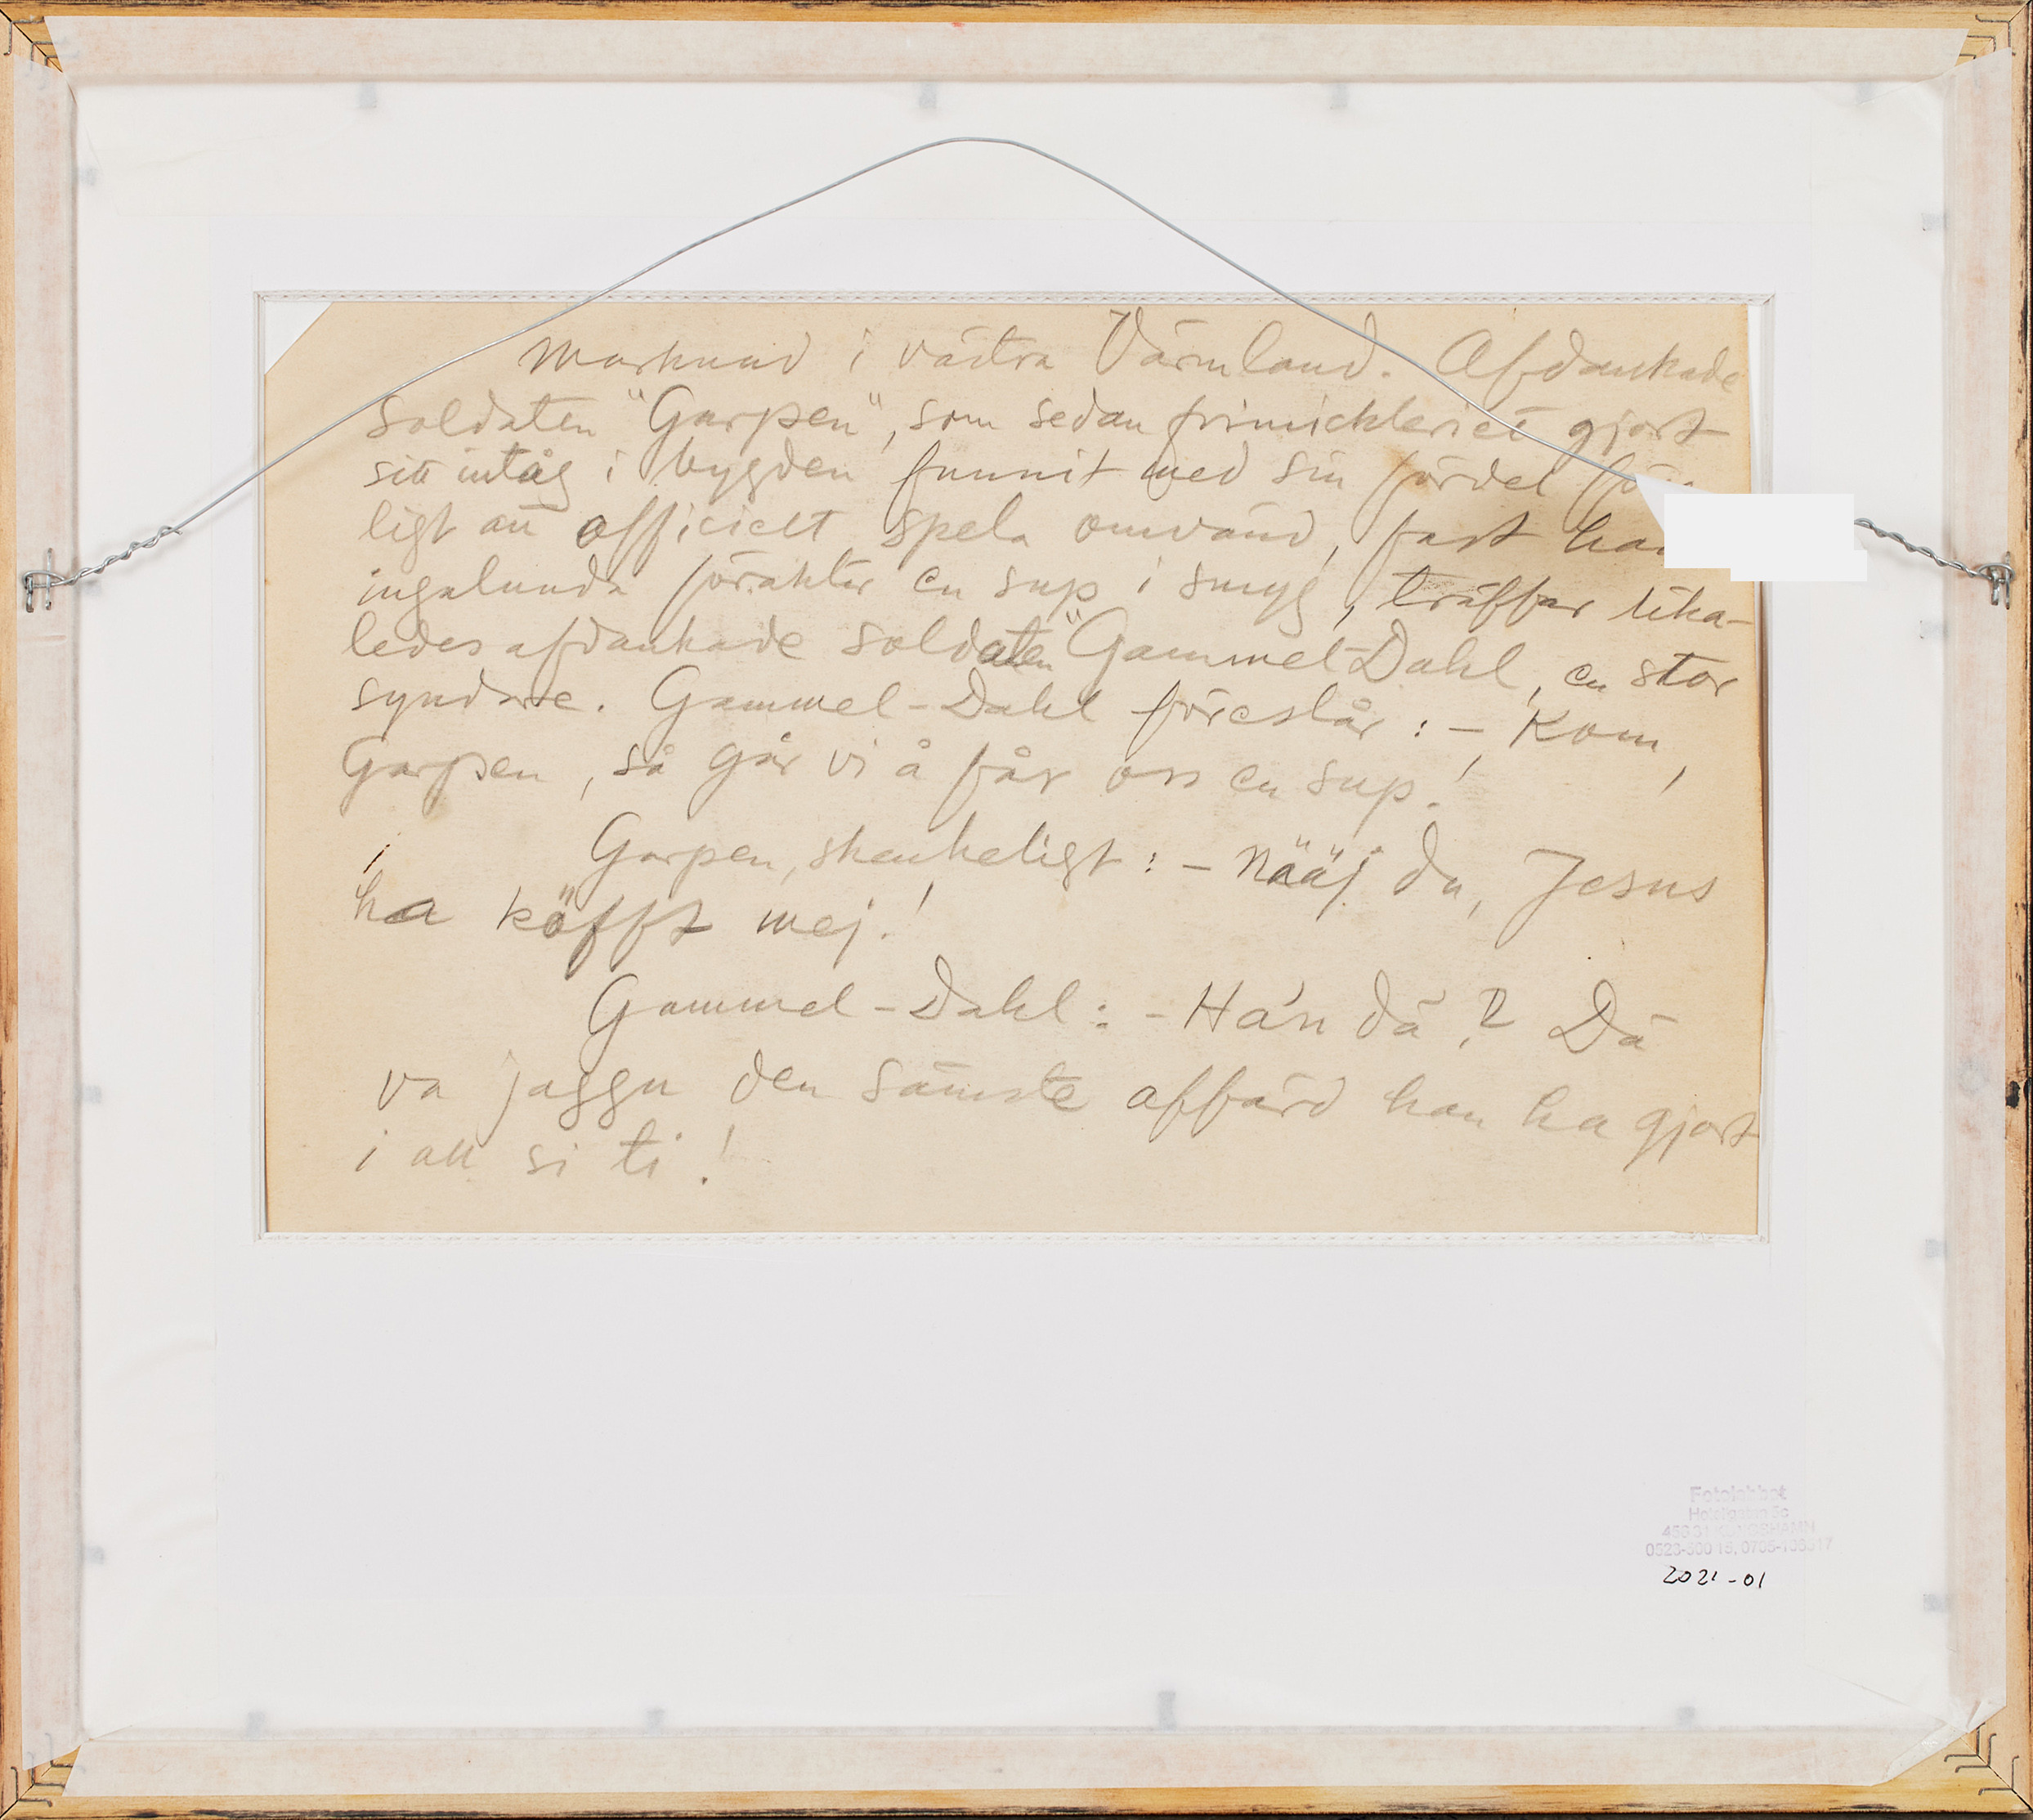 Marknad i västra Värmland. Afdankade
soldaten "Garpen", som sedan frimickleriet gjort
sitt intåg i bygden funnit med sin fördel
ligt att officielt spela omvänd, fast
ingalunda föraktar en sup i smyg, träffar lika-
ledes afdankade soldaten "Gammel-Dahl, en stor
syndare. Gammel-Dahl föreslår: - Kom,
Garpen, så går vi å får oss en sup!
Garpen, skenheligt: - Nääj du, Jesus
ha köfft mej!
Gammel-Dahl: - Ha'n dä? Dä
va jaggu den sämste affärd han ha gjort
i all si ti!
Fotolabbet
Hotellgatan 5c
456 31 KUNGSHAMN
2021-01